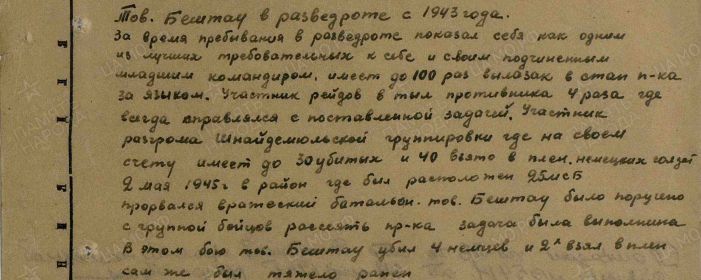 Тов. Бештау в разведроте с 1943 года.
За время пребывания в разведроте показал себя как одним
из лучших требовательных к себе и своим подчиненным
младшим командиром, имеет до 100 раз вылазак в стан п-ка
за языком. Участник рейдов в тыл противника 4 раза где
всегда справлялся с поставленной задачей. Участник
разгрома Шнайдемюльской группировки где на своем
счету имеет до 30 убитых и 40 взято в плен. немецких солдат
2 мая 1945 г в район где был расположен 25 мсБ
прорвался вражеский батальон. тов. Бештау было поручено
с группой бойцов рассеять пр-ка задача была выполнина
В этом бою тов. Бештау убил 4 немцев и 2х взял в плен
сам же был тяжело ранен